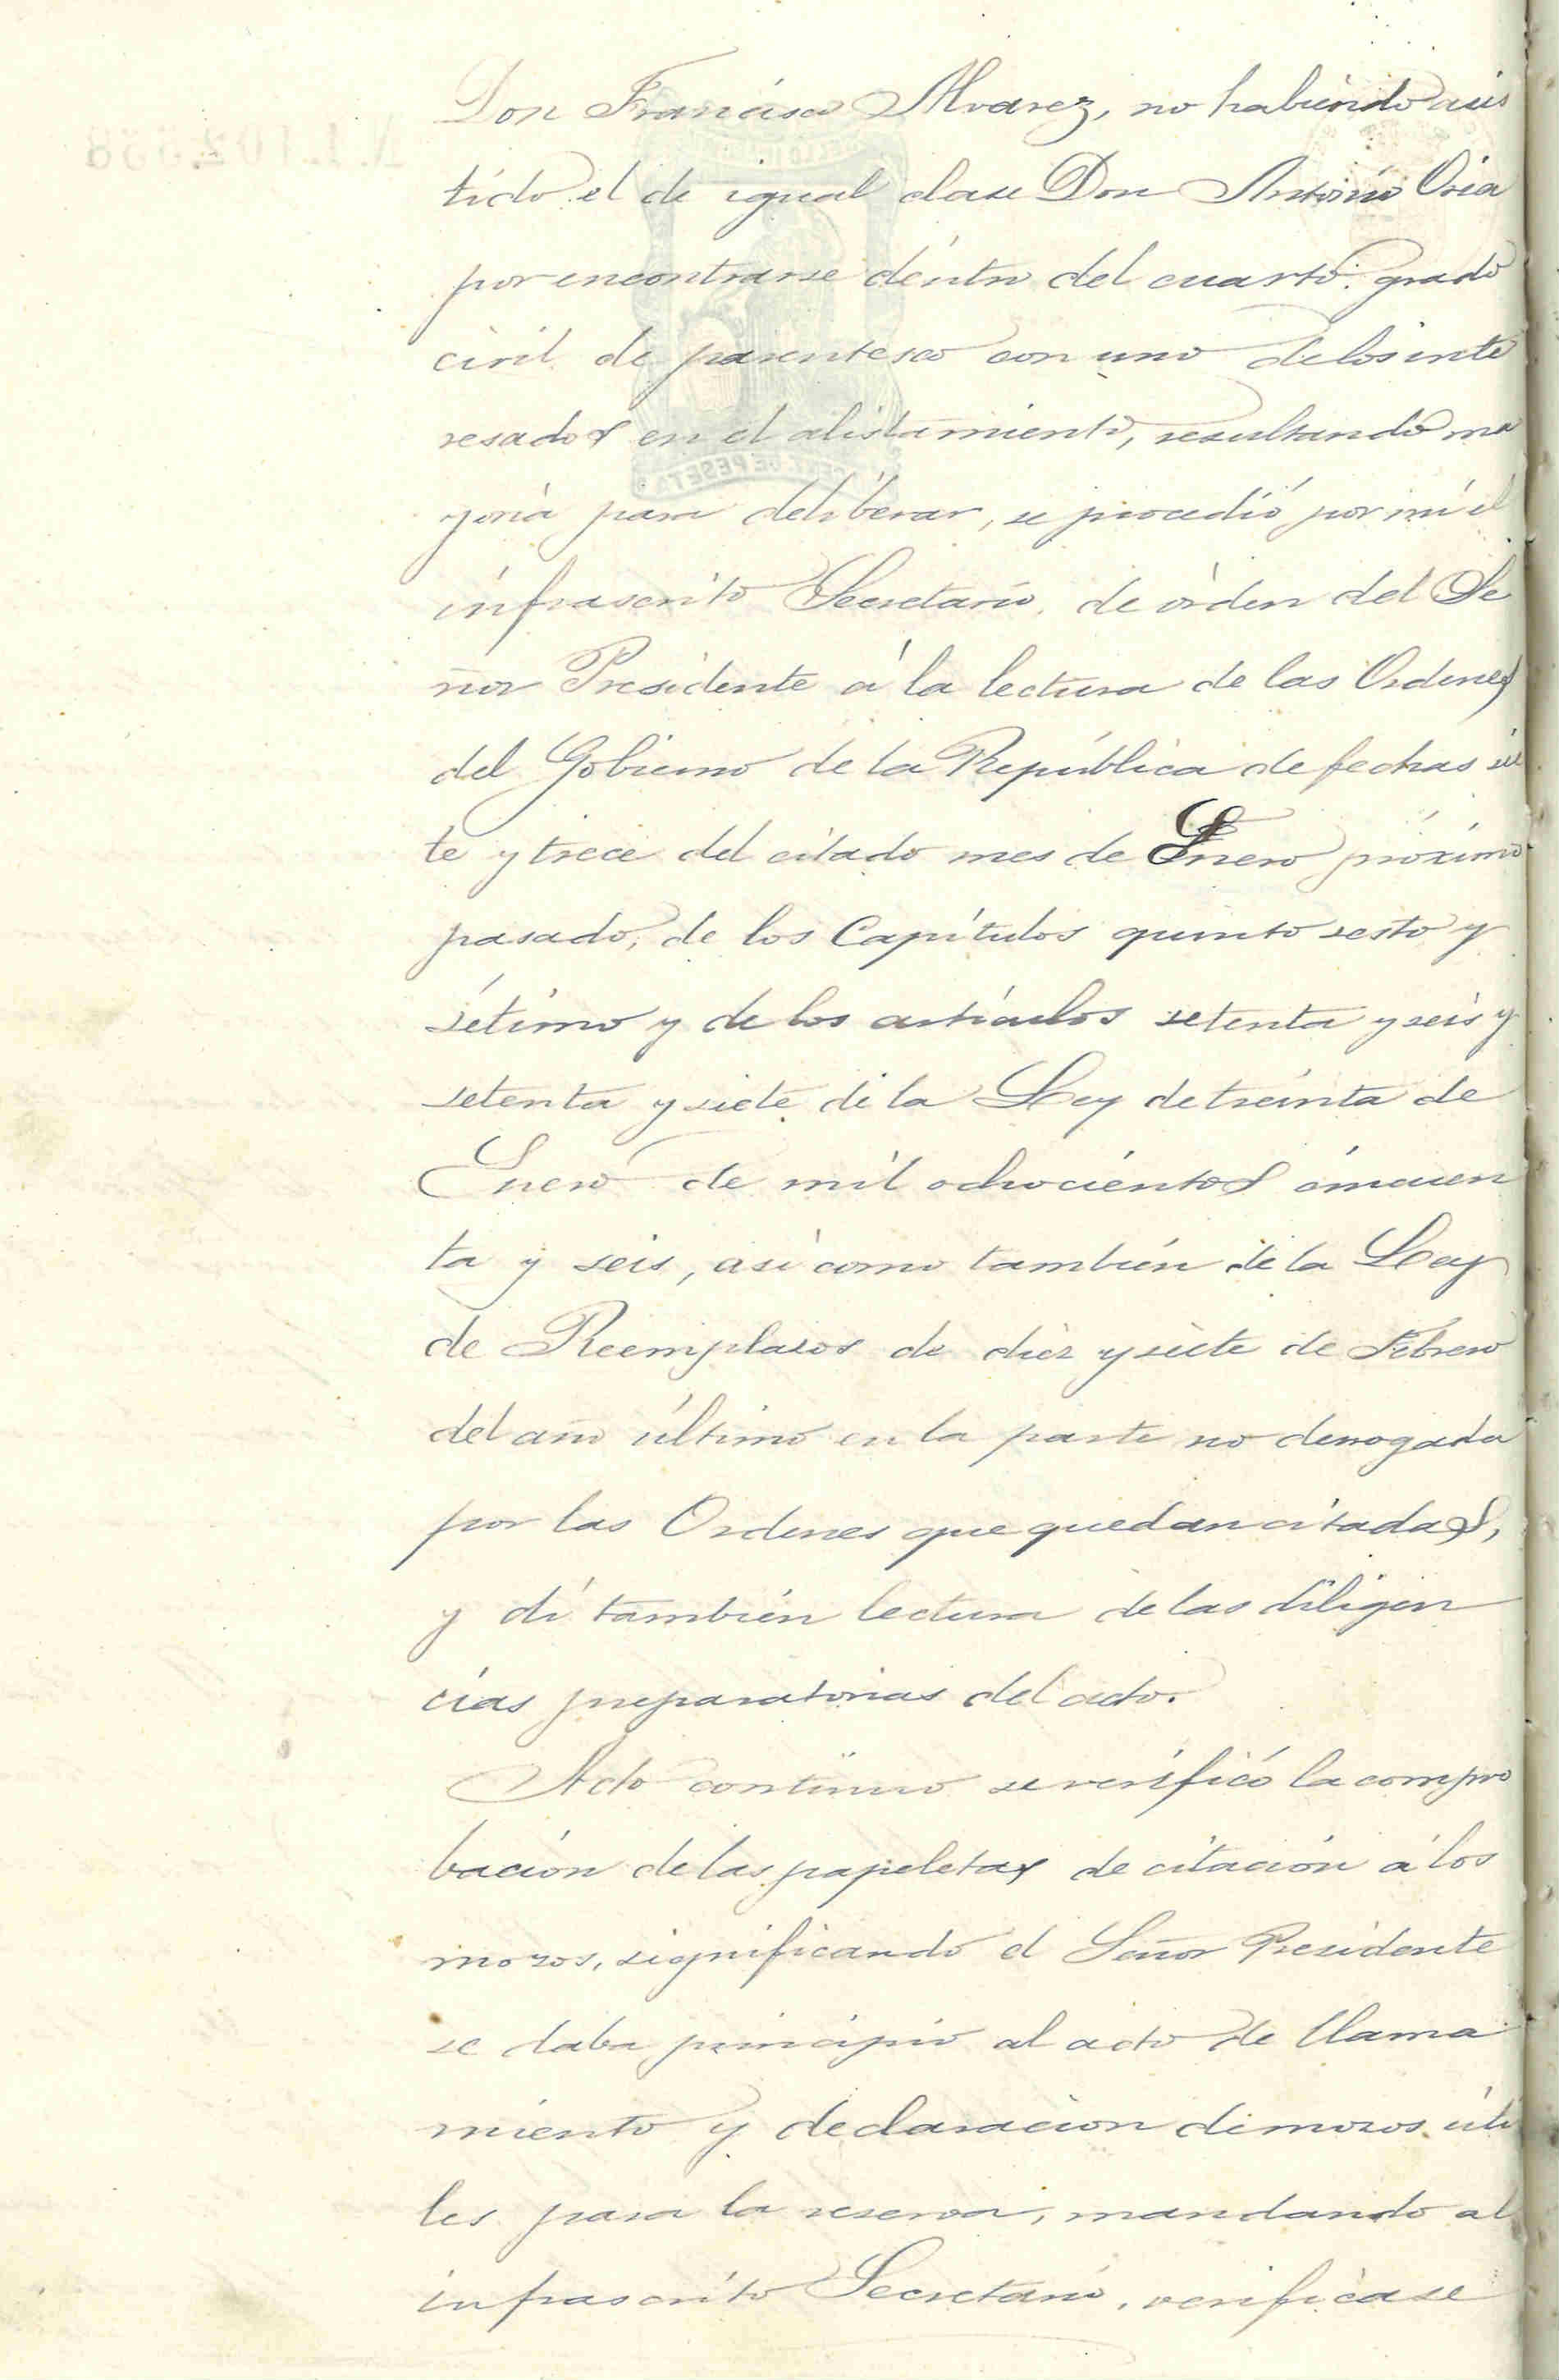 Don Francisco Alvarez, no habiendo asis
tido el de igual clase Don Antonio Oria
por encontrarse déntro del cuarto grado
civil de parentesco con uno de los inte
resados en el alistamiento, resultando ma
yoria para deliberar, se procedió por mi el
infrascrito Secretario, de órden del Se
ñor Presidente á la lectura de las Ordenes
del Gobierno de la República de fechas sie
te y trece del citado mes de Enero próximo
pasado, de los Capítulos quinto sesto y
sétimo y de los artículos setenta y seis y
setenta y siete de la Ley de treinta de
Enero de mil ochocientos cincuen
ta y seis, asi como también de la Ley
de Reemplazos de diez y siete de Febrero
del año último en la parte no derogada
por las Ordenes que quedan citadas,
y dí también lectura de las diligen
cias preparatorias del acto.
Acto contínuo se verificó la compro
bación de las papeletas de citación á los
mozos, significando el Señor Presidente
se daba principio al acto de llama
miento y declaración de mozos úti
les para la reserva, mandando al
infrascrito Secretario, verificase